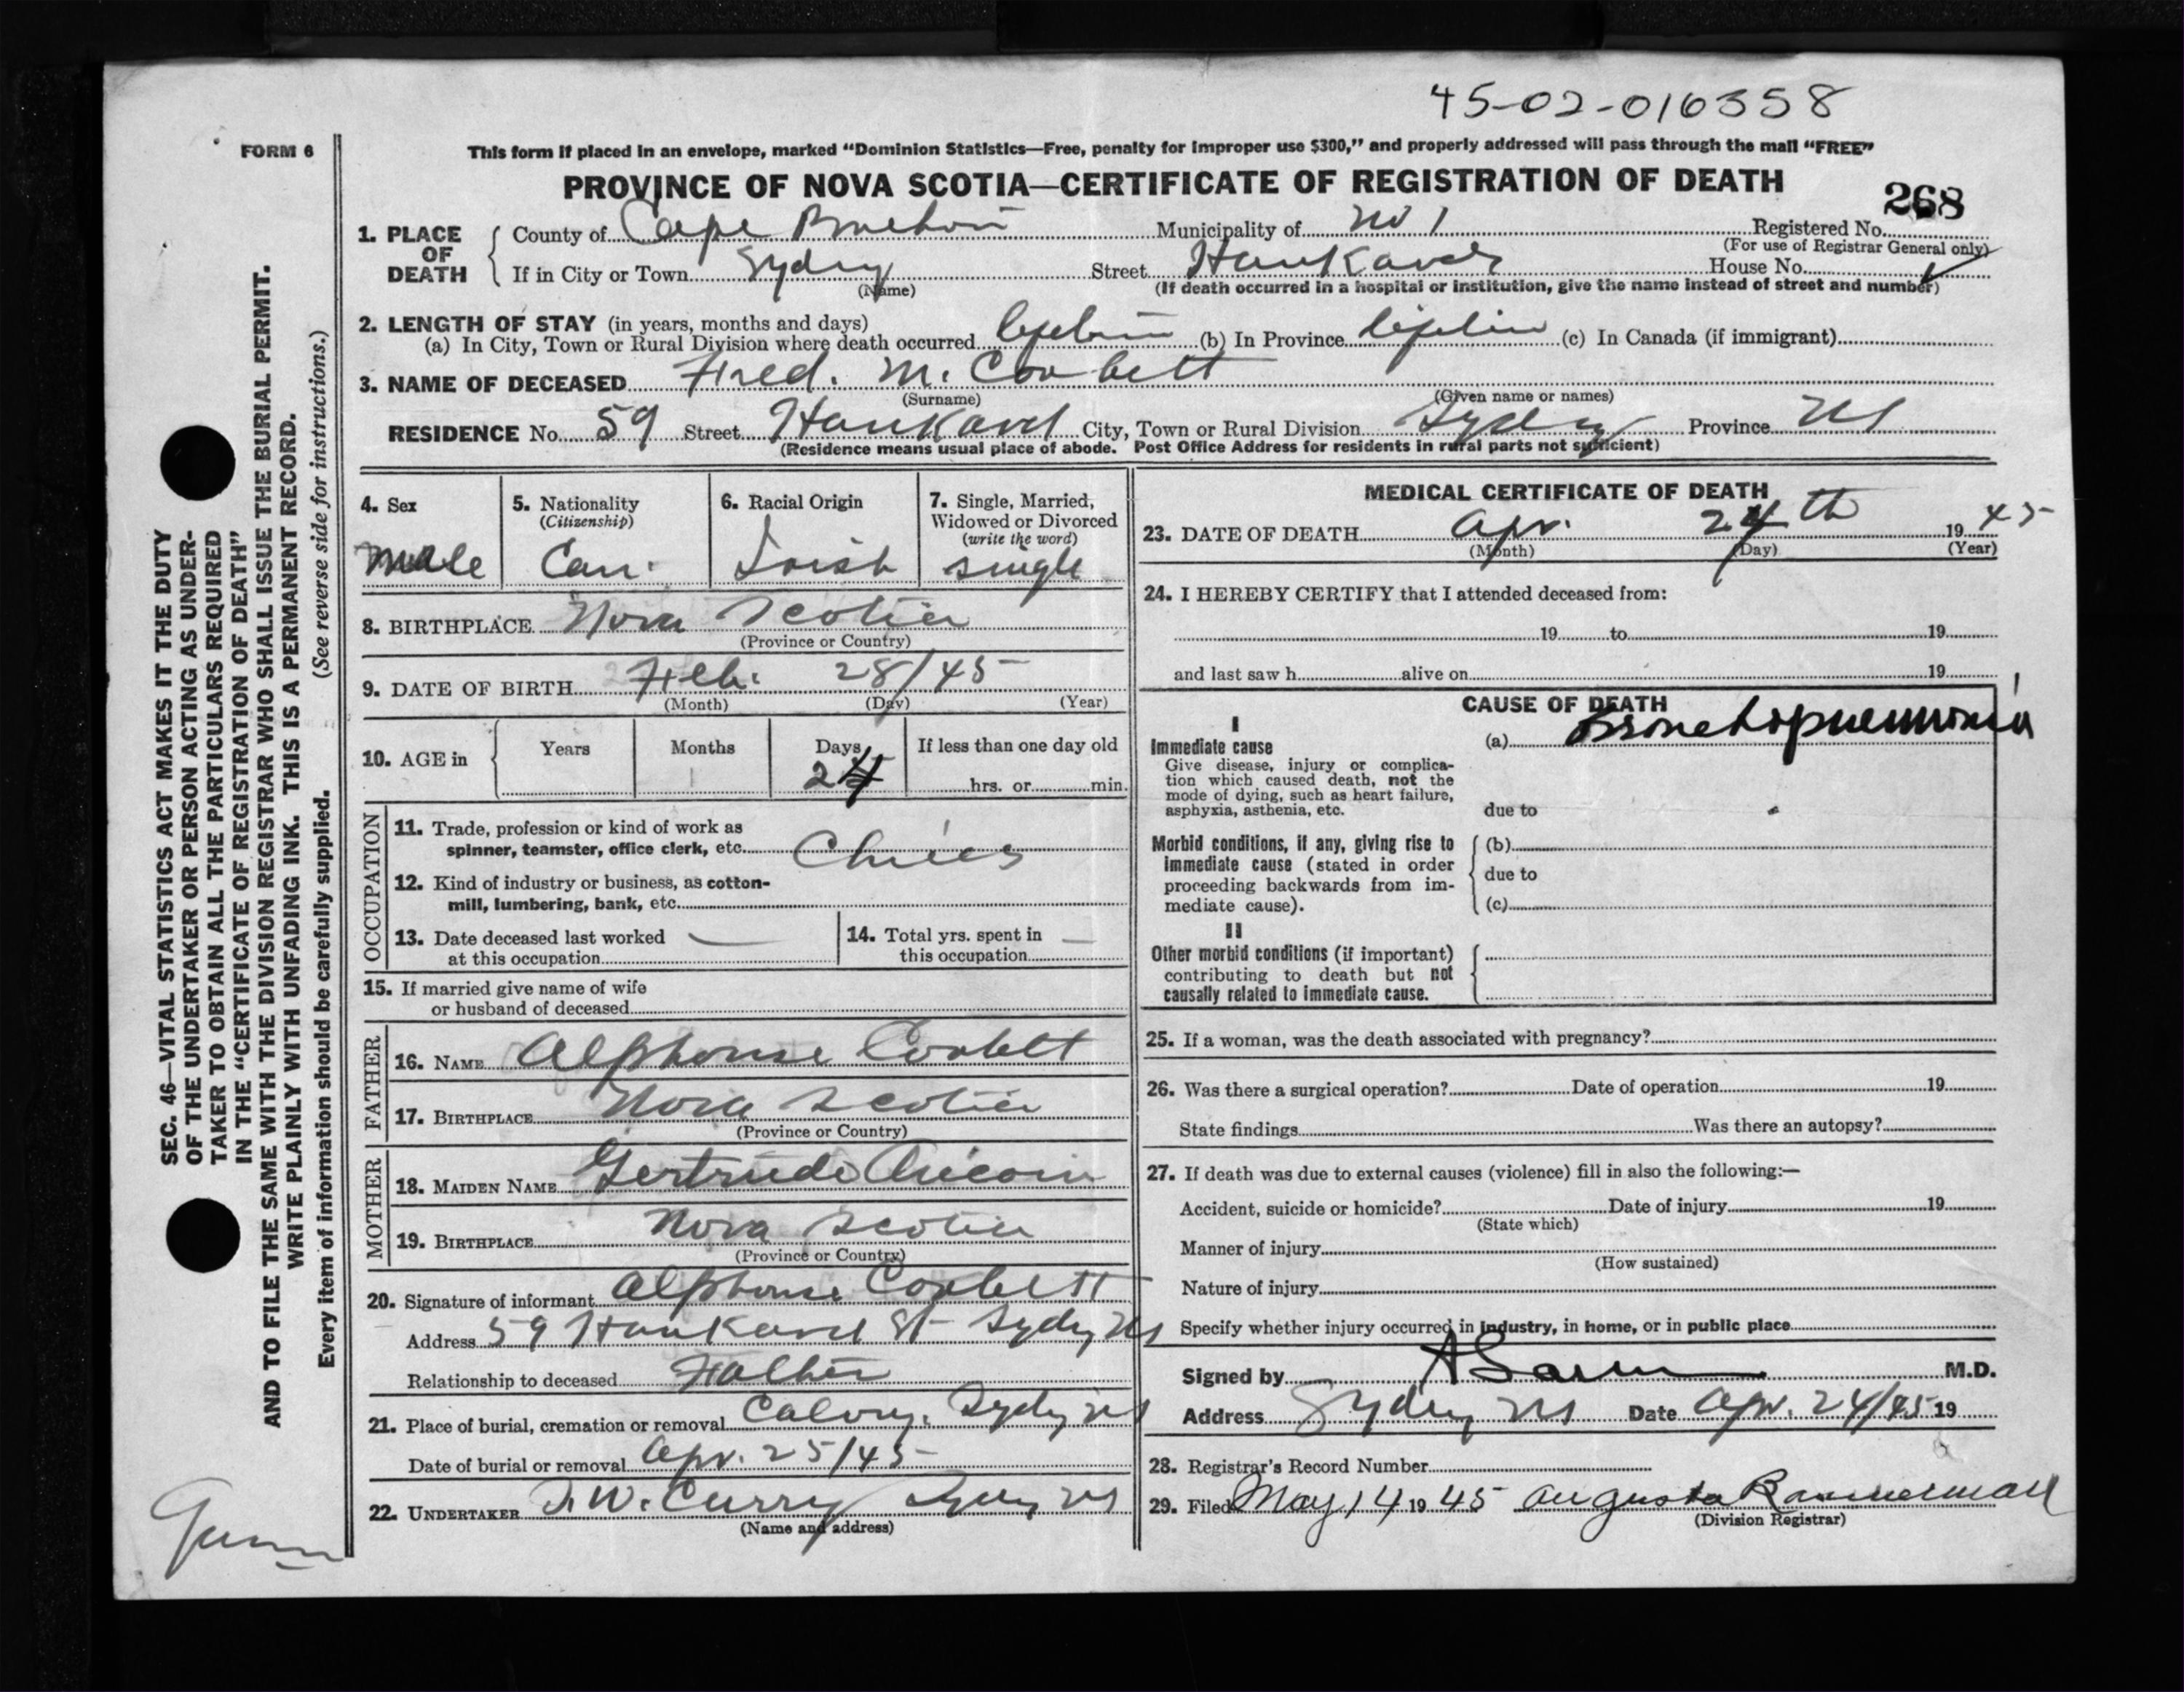 45-02-016358
FORM 6
This form if placed in an envelope, marked "Dominion Statistics—Free, penalty for improper use $300," and properly addressed will pass through the mail "FREE"
PROVINCE OF NOVA SCOTIA—CERTIFICATE OF REGISTRATION OF DEATH
268
1. PLACE OF DEATH
County of Cape Breton Municipality of No 1 Registered No.
(For use of Registrar General only)
If in City or Town Sydney Street House No.
(Name) (If death occurred in a hospital or institution, give the name instead of street and number)
2. LENGTH OF STAY (in years, months and days)
(a) In City, Town or Rural Division where death occurred (b) In Province (c) In Canada (if immigrant)
3. NAME OF DECEASED Fred. M. Corbett
(Surname) (Given name or names)
RESIDENCE No. 59 Street City, Town or Rural Division Sydney Province NS
(Residence means usual place of abode. Post Office Address for residents in rural parts not sufficient)
4. Sex
Male
5. Nationality
(Citizenship)
Can.
6. Racial Origin
Irish
7. Single, Married,
Widowed or Divorced
(write the word)
single
8. BIRTHPLACE Nova Scotia
(Province or Country)
9. DATE OF BIRTH Feb. 28/45
(Month) (Day) (Year)
10. AGE in
Years Months Days If less than one day old
24 hrs. or min.
OCCUPATION
11. Trade, profession or kind of work as
spinner, teamster, office clerk, etc.
12. Kind of industry or business, as cotton-
mill, lumbering, bank, etc.
13. Date deceased last worked
at this occupation
14. Total yrs. spent in
this occupation
15. If married give name of wife
or husband of deceased
FATHER
16. NAME Alphonse Corbett
17. BIRTHPLACE Nova Scotia
(Province or Country)
MOTHER
18. MAIDEN NAME Gertrude
19. BIRTHPLACE Nova Scotia
(Province or Country)
20. Signature of informant Alphonse Corbett
Address 59 St Sydney NS
Relationship to deceased Father
21. Place of burial, cremation or removal Sydney NS
Date of burial or removal Apr. 25/45
22. UNDERTAKER Curry Sydney NS
(Name and address)
MEDICAL CERTIFICATE OF DEATH
23. DATE OF DEATH Apr. 24th 19 45
(Month) (Day) (Year)
24. I HEREBY CERTIFY that I attended deceased from:
19 to 19
and last saw h alive on 19
CAUSE OF DEATH
I
Immediate cause
Give disease, injury or complica-
tion which caused death, not the
mode of dying, such as heart failure,
asphyxia, asthenia, etc.
(a) Bronchopneumonia
due to
Morbid conditions, if any, giving rise to
immediate cause (stated in order
proceeding backwards from im-
mediate cause).
(b)
due to
(c)
II
Other morbid conditions (if important)
contributing to death but not
causally related to immediate cause.
25. If a woman, was the death associated with pregnancy?
26. Was there a surgical operation? Date of operation 19
State findings Was there an autopsy?
27. If death was due to external causes (violence) fill in also the following:—
Accident, suicide or homicide? Date of injury 19
(State which)
Manner of injury
(How sustained)
Nature of injury
Specify whether injury occurred in industry, in home, or in public place
Signed by M.D.
Address Sydney NS Date Apr. 24/45 19
28. Registrar's Record Number
29. Filed May 14 19 45 Augusta Bannerman
(Division Registrar)
SEC. 46—VITAL STATISTICS ACT MAKES IT THE DUTY
OF THE UNDERTAKER OR PERSON ACTING AS UNDER-
TAKER TO OBTAIN ALL THE PARTICULARS REQUIRED
IN THE "CERTIFICATE OF REGISTRATION OF DEATH"
AND TO FILE THE SAME WITH THE DIVISION REGISTRAR WHO SHALL ISSUE THE BURIAL PERMIT.
WRITE PLAINLY WITH UNFADING INK. THIS IS A PERMANENT RECORD.
Every item of information should be carefully supplied. (See reverse side for instructions.)